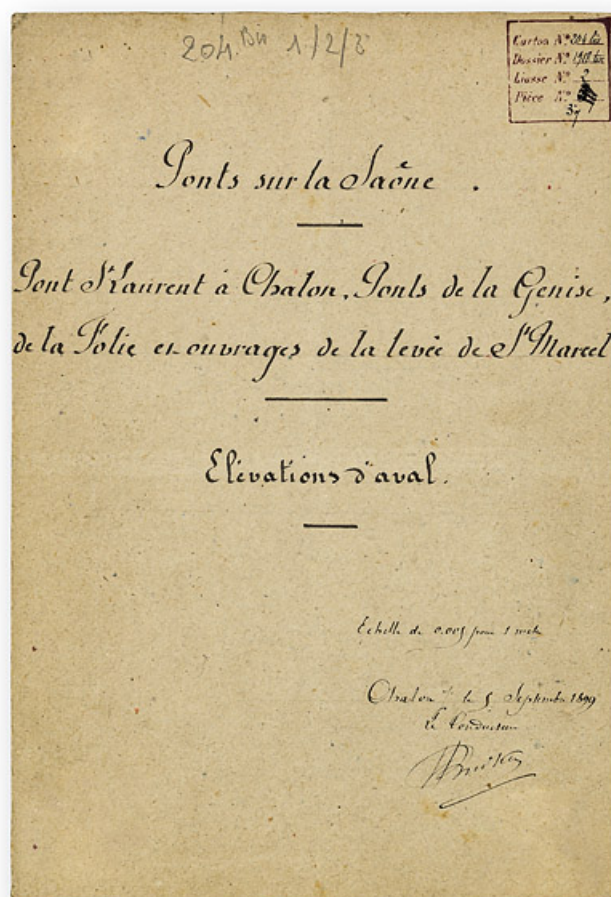 204.Bis 1/2/3
Carton N° 204 bis
Dossier N°
Liasse N° 2
Pièce N°
37
Ponts sur la Saône .
Pont St Laurent à Chalon, Ponts de la Genise,
de la Folie et ouvrages de la levée de St Marcel
Elévations d'aval.
Echelle de 0.005 pour 1 mètre
Chalon le 5 Septembre 1899
Le Conducteur